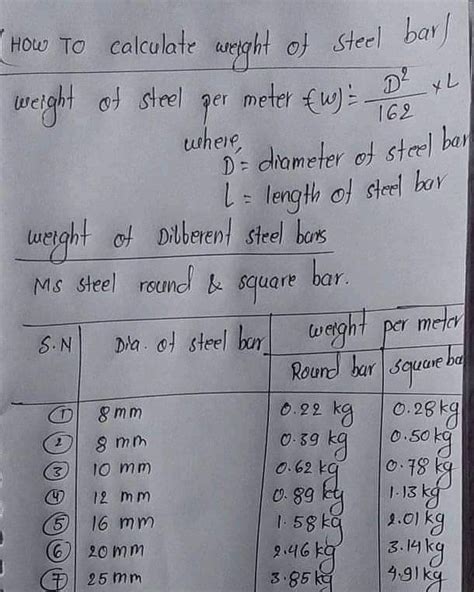 (HOW TO calculate weight of steel bar)
weight of steel per meter (w) = D²/162 × L
where,
D = diameter of steel bar
L = length of steel bar
weight of Dibberent steel bars
Ms steel round & square bar.
S.N Dia. of steel bar weight per meter
Round bar square ba
1 8 mm 0.22 kg 0.28 kg
2 8 mm 0.39 kg 0.50 kg
3 10 mm 0.62 kg 0.78 kg
4 12 mm 0.89 kg 1.13 kg
5 16 mm 1.58 kg 2.01 kg
6 20 mm 2.46 kg 3.14 kg
7 25 mm 3.85 kg 4.91 kg